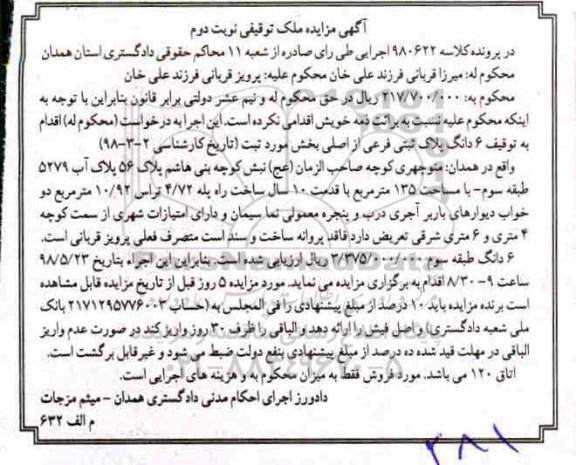 آگهی مزایده ملک توقیفی نوبت دوم
در پرونده کلاسه ۹۸۰۶۲۲ اجرایی طی رای صادره از شعبه ۱۱ محاکم حقوقی دادگستری استان همدان
محکوم له: میرزا قربانی فرزند علی خان محکوم علیه: پرویز قربانی فرزند علی خان
محکوم به: ۲۱۷/۷۰۰/۰۰۰ ریال در حق محکوم له و نیم عشر دولتی برابر قانون بنابراین با توجه به
اینکه محکوم علیه نسبت به برائت ذمه خویش اقدامی نکرده است. این اجرا به درخواست (محکوم له) اقدام
به توقیف ۶ دانگ پلاک ثبتی فرعی از اصلی بخش مورد ثبت (تاریخ کارشناسی ۲-۳-۹۸)
واقع در همدان: منوچهری کوچه صاحب الزمان (عج) نبش کوچه بنی هاشم پلاک ۵۶ پلاک آب ۵۲۷۹
طبقه سوم- با مساحت ۱۳۵ مترمربع با قدمت ۱۰ سال ساخت راه پله ۴/۷۲ تراس ۱۰/۹۲ مترمربع دو
خواب دیوارهای باربر آجری درب و پنجره معمولی نما سیمان و دارای امتیازات شهری از سمت کوچه
۴ متری و ۶ متری شرقی تعریض دارد فاقد پروانه ساخت و سند است متصرف فعلی پرویز قربانی است.
۶ دانگ طبقه سوم ۳/۳۷۵/۰۰۰/۰۰۰ ریال ارزیابی شده است. بنابراین این اجراء بتاریخ ۹۸/۵/۲۳
ساعت ۹- ۸/۳۰ اقدام به برگزاری مزایده می نماید. مورد مزایده ۵ روز قبل از تاریخ مزایده قابل مشاهده
است برنده مزایده باید ۱۰ درصد از مبلغ پیشنهادی را فی المجلس به (حساب ۲۱۷۱۲۹۵۷۷۶۰۰۳ بانک
ملی شعبه دادگستری) واصل فیش را ارائه دهد و الباقی را ظرف ۳۰ روز واریز کند در صورت عدم واریز
الباقی در مهلت قید شده ده درصد از مبلغ پیشنهادی بنفع دولت ضبط می شود و غیرقابل برگشت است.
اتاق ۱۲۰ می باشد. مورد فروش فقط به میزان محکوم به و هزینه های اجرایی است.
دادورز اجرای احکام مدنی دادگستری همدان - میثم مزجات
م الف ۶۳۲
۳۸۱